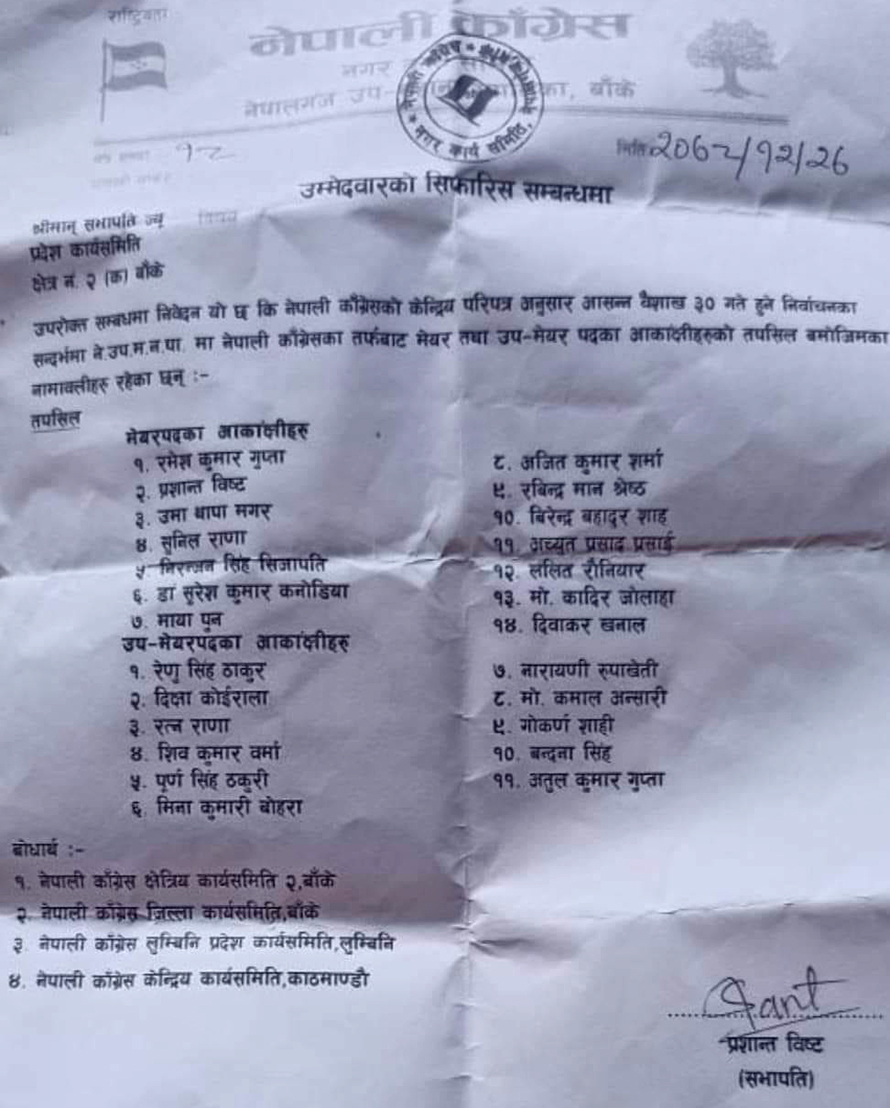 राष्ट्रियता
नेपाली काँग्रेस
नगर
नेपालगंज उप- का, बाँके
नेपाली काँग्रेस
नगर कार्य समिति
पत्र संख्या १८
मिति 2067८/१२/26
उम्मेदवारको सिफारिस सम्बन्धमा
श्रीमान् सभापति ज्यू विषय
प्रदेश कार्यसमिति
क्षेत्र नं. २ (क) बाँके
उपरोक्त सम्बधमा निवेदन यो छ कि नेपाली काँग्रेसको केन्द्रिय परिपत्र अनुसार आसन्न वैशाख ३० गते हुने निर्वाचनका
सन्दर्भमा ने.उप.म.न.पा. मा नेपाली काँग्रेसका तर्फबाट मेयर तथा उप-मेयर पदका आकांक्षीहरुको तपसिल बमोजिमका
नामावलीहरु रहेका छन् :-
तपसिल
मेयरपदका आकांक्षीहरु
१. रमेश कुमार गुप्ता
२. प्रशान्त विष्ट
३. उमा थापा मगर
४. सुनिल राणा
५ निरन्जन सिंह सिजापति
६. डा सुरेश कुमार कनोडिया
७. माया पुन
८. अजित कुमार शर्मा
९. रबिन्द्र मान श्रेष्ठ
१०. बिरेन्द्र बहादुर शाह
११. अच्युत प्रसाद प्रसाई
१२. ललित रौनियार
१३. मो. कादिर जोलाहा
१४. दिवाकर खनाल
उप-मेयरपदका आकांक्षीहरु
१. रेणु सिंह ठाकुर
२. दिक्षा कोईराला
३. रत्न राणा
४. शिव कुमार वर्मा
५. पूर्ण सिंह ठकुरी
६. मिना कुमारी बोहरा
७. नारायणी रुपाखेती
८. मो. कमाल अन्सारी
९. गोकर्ण शाही
१०. बन्दना सिंह
११. अतुल कुमार गुप्ता
बोधार्थ :-
१. नेपाली काँग्रेस क्षेत्रिय कार्यसमिति २,बाँके
२. नेपाली काँग्रेस जिल्ला कार्यसमिति,बाँके
३. नेपाली काँग्रेस लुम्बिनि प्रदेश कार्यसमिति,लुम्बिनि
४. नेपाली काँग्रेस केन्द्रिय कार्यसमिति,काठमाण्डौ
प्रशान्त विष्ट
(सभापति)